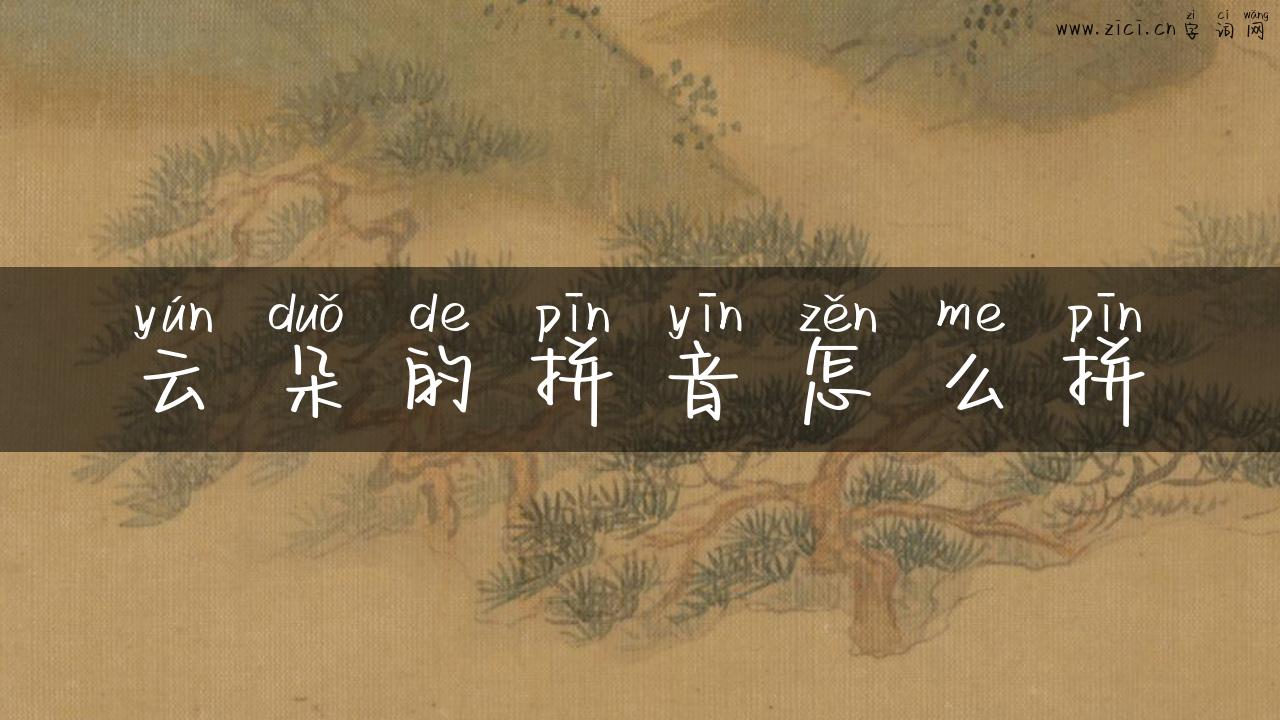 zì cí wǎng
www.zici.cn 字词网
yún duǒ de pīn yīn zěn me pīn
云朵的拼音怎么拼